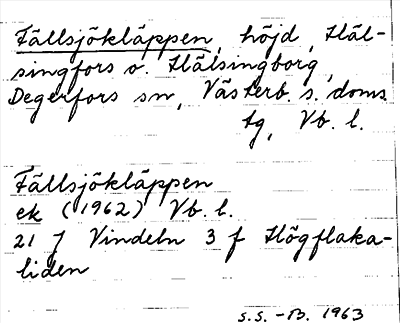 Fällsjökläppen, höjd, Häl-
singfors o. Hälsingborg,
Degerfors sn, Västerb. s. doms.
tg, Vb. l.
Fällsjökläppen
ek (1962) Vb. l.
21 J Vindeln 3 f Högflaka-
liden
S.S. -B. 1963